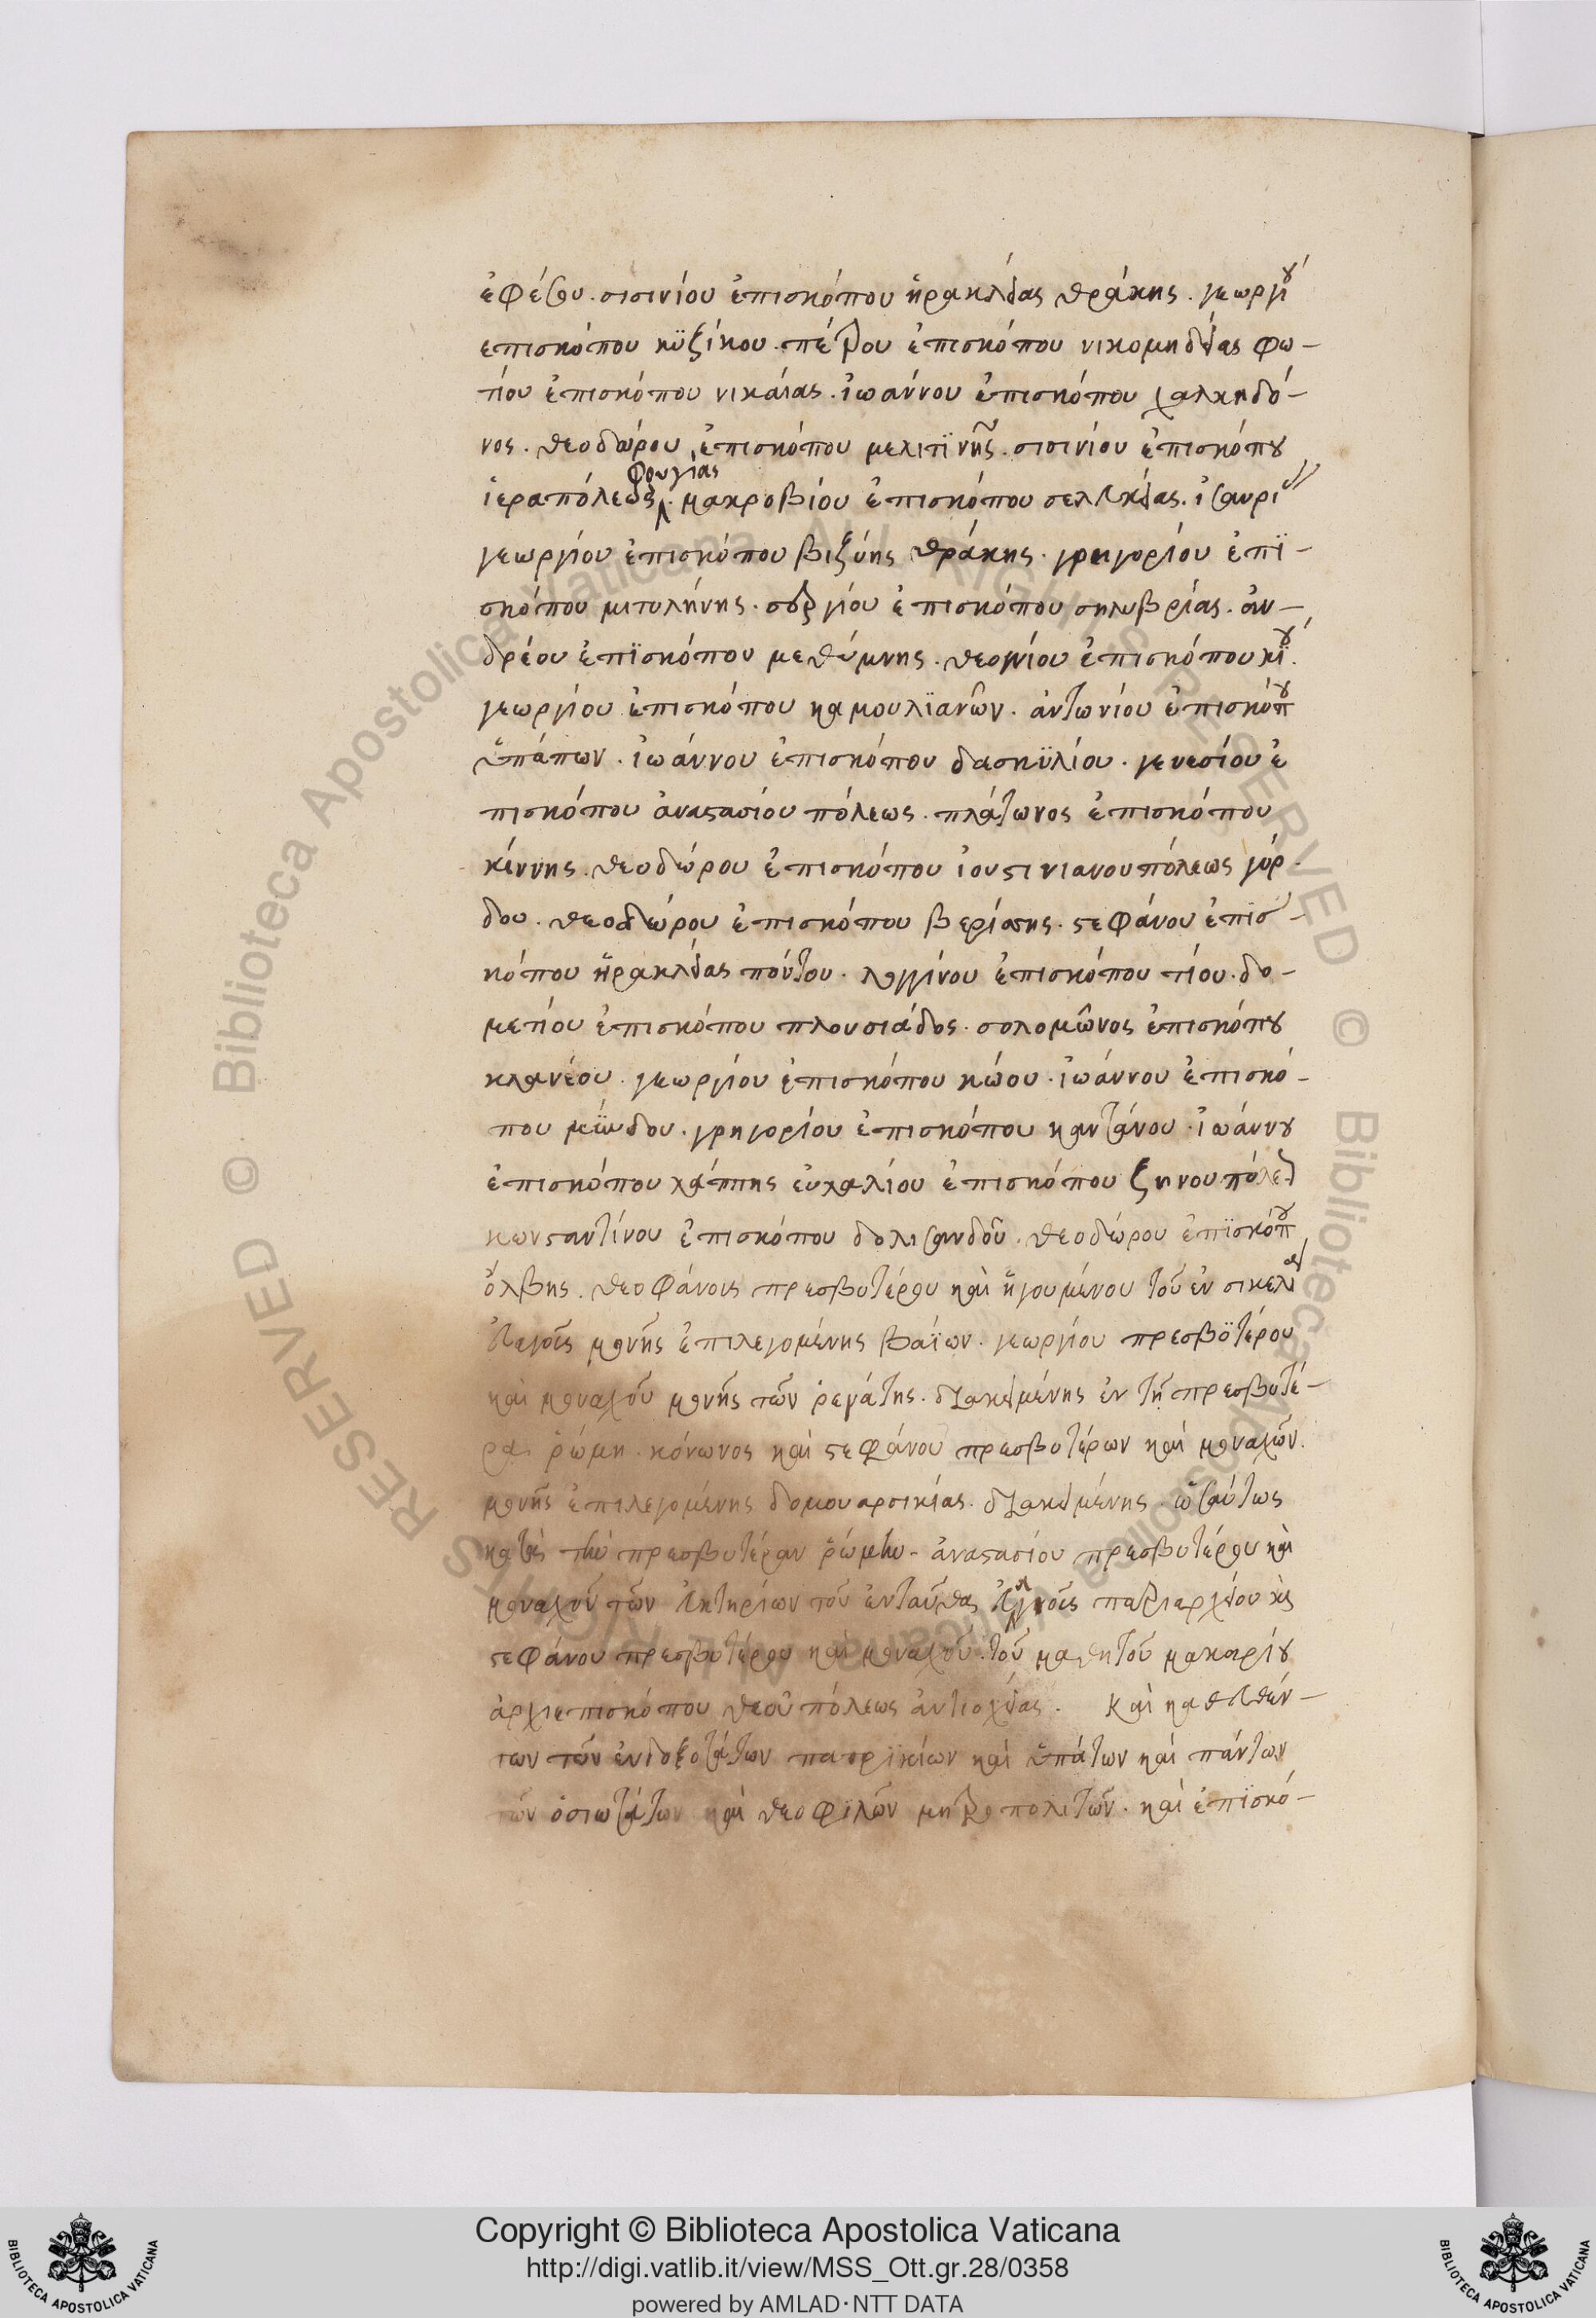 ἐφέσου. σισινίου ἐπισκόπου ἡρακλείας θράκης. γεωργίου
επισκόπου κϋζίκου. πέτρου ἐπισκόπου νικομηδείας φω-
τίου ἐπισκόπου νικαίας. ἰωάννου ἐπισκόπου χαλκηδό-
νος. θεοδώρου ἐπισκόπου μελιτϊνῆς. σισινίου ἐπισκόπου
ἱεραπόλεως φρυγίας. μακροβίου ἐπισκόπου σελευκείας. ἰσαυρι
γεωργίου ἐπισκόπου βιζύης θράκης. γρηγορίου ἐπϊ-
σκόπου μιτυλήνης. σεργίου ἐπισκόπου σηλυβρίας. ἀν-
δρέου ἐπϊσκόπου μεθύμνης. θεογνίου ἐπισκόπου κίου.
γεωργίου ἐπισκόπου καμουλϊανῶν. ἀντωνίου ἐπισκόπου
ὑπάπων. ἰωάννου ἐπισκόπου δασκϋλίου. γενεσίου ἐ
πισκόπου ἀναστασίου πόλεως. πλάτωνος ἐπισκόπου
κίννης. θεοδώρου ἐπισκόπου ἰουστινιανουπόλεως γόρ-
δου. θεοδώρου ἐπισκόπου βερίσσης. στεφάνου ἐπϊσ-
κόπου ἡρακλείας πόντου. λογγίνου ἐπισκόπου τίου. δο-
μετίου ἐπισκόπου πλουσιάδος. σολομῶνος ἐπισκόπου
κλανέου. γεωργίου ἐπισκόπου κώου. ἰωάννου ἐπισκό-
που μϋνδου. γρηγορίου ἐπισκόπου καντάνου. ἰωάννου
ἐπισκόπου λάππης εὐλαλίου ἐπισκόπου ζηνουπόλεως
κωνσταντίνου ἐπισκόπου δαλισανδοῦ. θεοδώρου ἐπϊσκόπου
ὄλβης. θεοφάνους πρεσβυτέρου καὶ ἡγουμένου τοῦ ἐν σικελία
εὐαγοῦς μονῆς ἐπιλεγομένης βαΐων. γεωργίου πρεσβϋτέρου
καὶ μοναχοῦ μονῆς τῶν ῥενάτης. διακειμένης ἐν τῇ πρεσβυτέ-
ρα ῥώμη. κόνωνος καὶ στεφάνου πρεσβυτέρων καὶ μοναχῶν.
μονῆς ἐπιλεγομένης δομουαρσικίας. διακειμένης. ὡσαύτως
κατὰ τὴν πρεσβυτέραν ῥώμην. ἀναστασίου πρεσβυτέρου καὶ
μοναχοῦ τῶν εὐκτηρίων τοῦ ἐνταῦθα εὐαγοῦς πατριαρχείου καὶ
στεφάνου πρεσβυτέρου καὶ μοναχοῦ. τοῦ μαθητοῦ μακαρίου
ἀρχιεπισκόπου θεοῦ πόλεως ἀντιοχείας. Καὶ καθευθέν-
των τῶν ἐνδοξοτάτων πατρϊκίων καὶ ὑπάτων καὶ πάντων
τῶν ὁσιωτάτων καὶ θεοφϊλῶν μητροπολιτῶν. καὶ ἐπϊσκό-
© Biblioteca Apostolica Vaticana ALL RIGHTS RESERVED
Copyright © Biblioteca Apostolica Vaticana
http://digi.vatlib.it/view/MSS_Ott.gr.28/0358
powered by AMLAD·NTT DATA
BIBLIOTECA APOSTOLICA VATICANA
BIBLIOTECA APOSTOLICA VATICANA